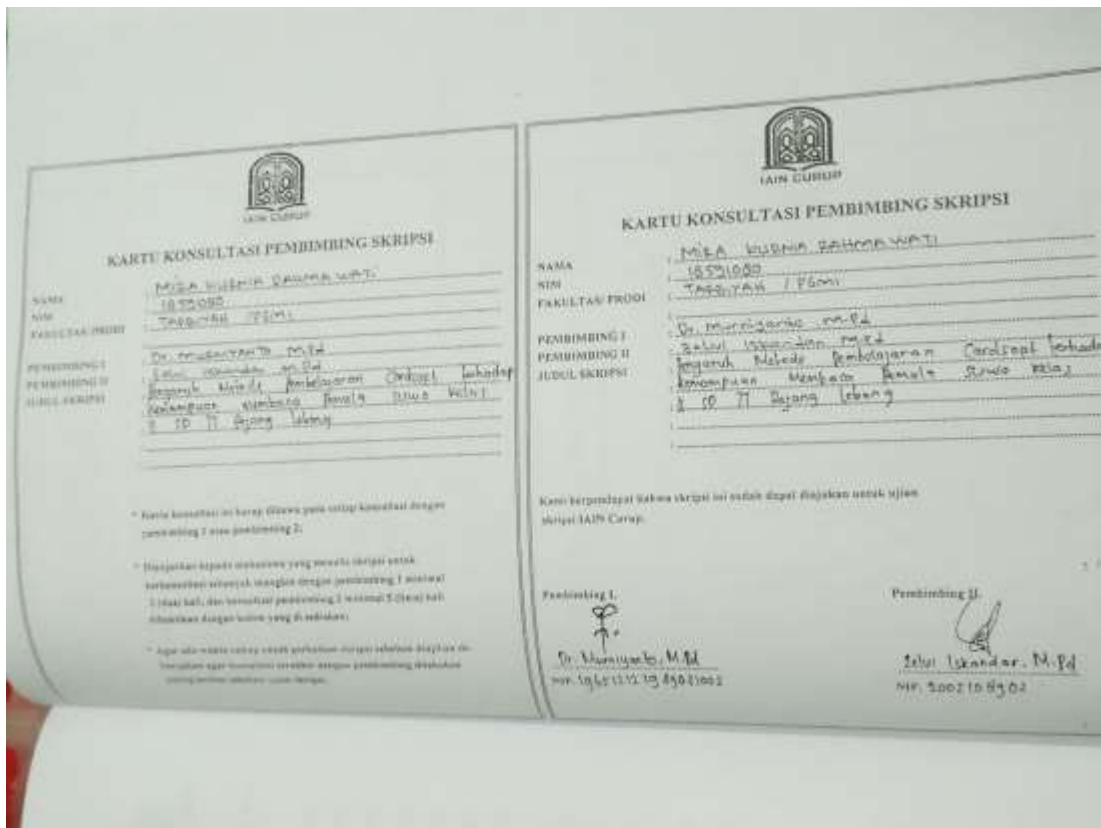 IAIN CURUP
KARTU KONSULTASI PEMBIMBING SKRIPSI
NAMA : MIRA KURNIA RAHMA WATI
NIM : 18591080
FAKULTAS/ PRODI : TARBIYAH / PGMI
PEMBIMBING I : Dr. MURNIYANTO M.Pd
PEMBIMBING II : Zelvi Iskandar M.Pd
JUDUL SKRIPSI : Pengaruh Metode Pembelajaran Cardsort Terhadap
Kemampuan Membaca Pemula Siswa Kelas
Rejang Lebong
* Kartu konsultasi ini harap dibawa pada setiap konsultasi dengan
pembimbing 1 atau pembimbing 2;
* Dianjurkan kepada mahasiswa yang menulis skripsi untuk
berkonsultasi sebanyak mungkin dengan pembimbing 1 minimal
2 (dua) kali, dan konsultasi pembimbing 2 minimal 5 (lima) kali
dibuktikan dengan kolom yang di sediakan;
* Agar ada waktu cukup untuk perbaikan skripsi sebelum diujikan di
harapkan agar konsultasi terakhir dengan pembimbing dilakukan
IAIN CURUP
KARTU KONSULTASI PEMBIMBING SKRIPSI
NAMA : MIRA KURNIA RAHMA WATI
NIM : 18591080
FAKULTAS/ PRODI : TARBIYAH / PGMI
PEMBIMBING I : Dr. Murniyanto M.Pd
PEMBIMBING II : Zelvi Iskandar M.Pd
JUDUL SKRIPSI : Pengaruh Metode Pembelajaran Cardsopt Terhadap
Kemampuan Membaca Pemula Siswa Kelas
Rejang Lebong
Kami berpendapat bahwa skripsi ini sudah dapat diajukan untuk ujian
skripsi IAIN Curup.
Pembimbing I,
Dr. Murniyanto, M.Pd
NIP. 196512121989031002
Pembimbing II,
Zelvi Iskandar, M.Pd
NIP. 2002108902